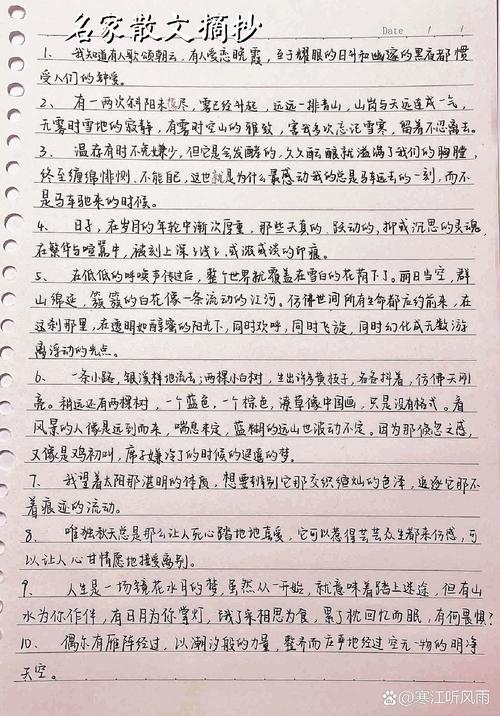 名家散文摘抄
Date / /
1、 我知道有人歌颂朝云，有人爱恋晚霞，至于耀眼的日升和幽邃的黑夜都惯
受人们的钟爱。
2、 有一两次斜阳未尽，雾已经升起，远远一排青山，山岗与天远连成一气，
无雾时雪地的寂静，有雾时空山的雅致，害我多次忘记雪寒，留着不忍离去。
3、 温存有时不免嫌少，但它是会发酵的，久久酝酿就溢满了我们的胸膛，
终至缠绵悱恻、不能自已，这也就是为什么最感动我的总是马车远去的一刻，而不
是马车驰来的时候。
4、 日子，在岁月的年轮中渐次厚重，那些天真的、跃动的、抑或沉思的灵魂，
在繁华与喧嚣中，被刻上深深浅浅、或浓或淡的印痕。
5、 在低低的呼唤声传过后，整个世界就覆盖在雪白的花荫下了。丽日当空，群
山绵延，簇簇的白花像一条流动的江河。仿佛世间所有生命都应约前来，在
这刹那里，在透明如醇蜜的阳光下，同时欢呼，同时飞旋，同时幻化成无数游
离浮动的光点。
6、 一条小路，银溪样地流去；两棵小白树，生出许多黄枝子，各各抖着，仿佛天刚
亮。稍远还有两棵树，一个蓝色，一个棕色，潦草像中国画，只是没有格式。看
风景的人像是远到而来，喘息未定，蓝糊的远山也波动不定。因为那倏忽之感，
又像是鸡初叫，席子嫌冷了的时候的迢遥的梦。
7、 我望着太阳那湛明的体质，想要辨别它那交织绚灿的色泽，追逐它那不
着痕迹的流动。
8、 唯独秋天总是那么让人死心踏地地喜爱，它可以惹得芸芸众生都来伤感，可
以让人心甘情愿地接受离别。
9、 人生是一场镜花水月的梦，虽然从一开始，就意味着踏上迷途，但有山
水为你作伴，有日月为你掌灯，饿了采相思为食，累了枕回忆而眠，有何畏惧？
10、 偶尔有雁阵经过，以潮汐般的力量，整齐而庄严地经过空无一物的明净
天空。
寒江听风雨